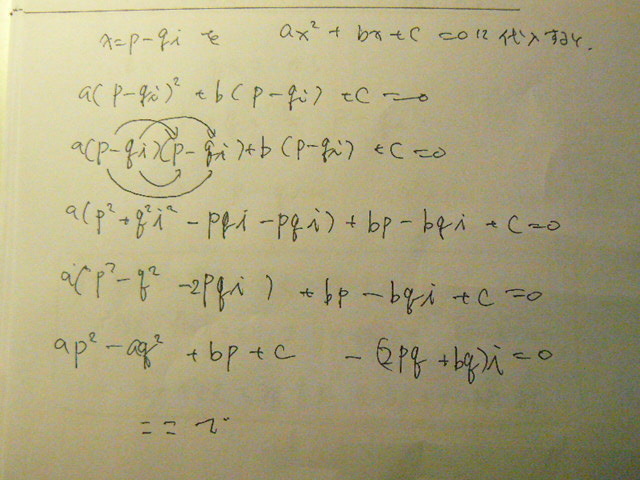 x=p-qi を ax²+bx+c=0に代入すると.
a(p-qi)²+b(p-qi)+c=0
a(p-qi)(p-qi)+b(p-qi)+c=0
a(p²+q²i²-pqi-pqi)+bp-bqi+c=0
a(p²-q²-2pqi)+bp-bqi+c=0
ap²-aq²+bp+c -(2pq+bq)i=0
ここで